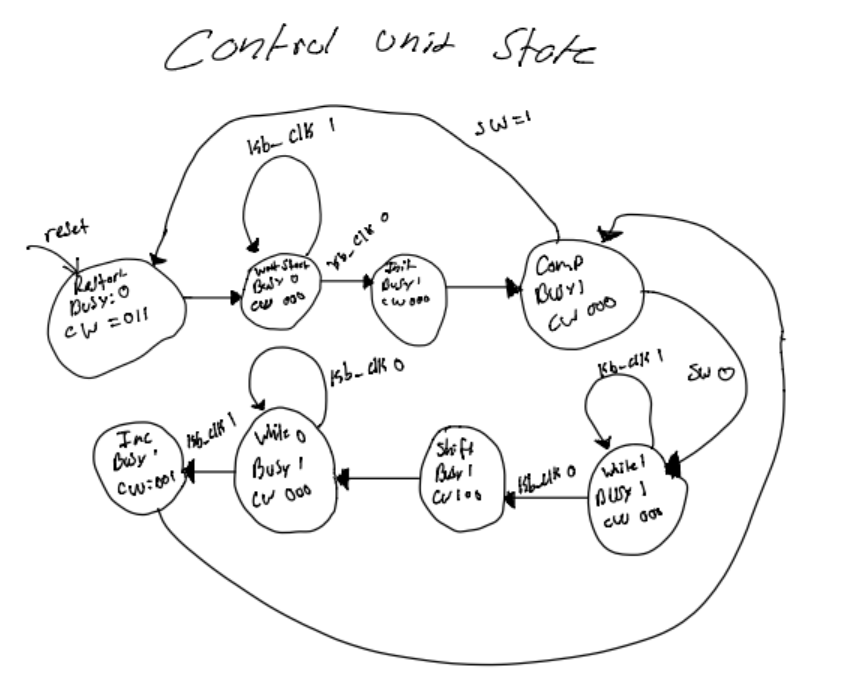 Control unit State
SW=1
kb_clk 1
reset
kb_clk 0
Busy: 0
CW = 011
Wait Start
Busy 0
CW 000
Init
Busy 1
CW 000
Comp
Busy 1
CW 000
SW 0
kb_clk 0
kb_clk 1
kb_clk 1
Inc
Busy 1
CW=001
While 0
Busy 1
CW 000
Shift
Busy 1
CW 100
kb_clk 0
While 1
Busy 1
CW 000